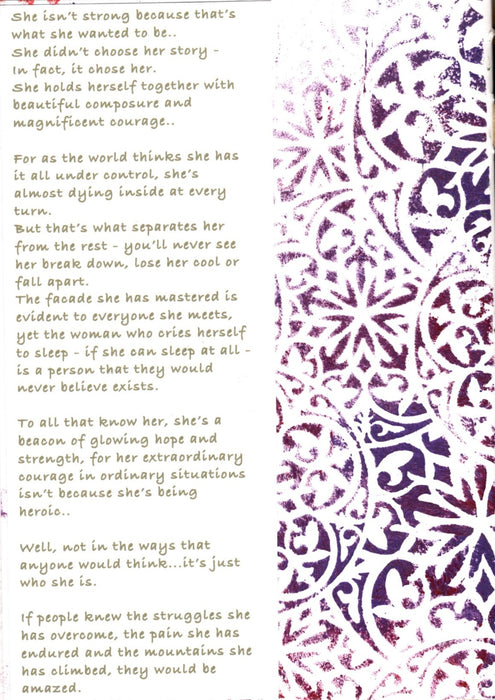 She isn't strong because that's
what she wanted to be..
She didn't choose her story -
In fact, it chose her.
She holds herself together with
beautiful composure and
magnificent courage..
For as the world thinks she has
it all under control, she's
almost dying inside at every
turn.
But that's what separates her
from the rest - you'll never see
her break down, lose her cool or
fall apart.
The facade she has mastered is
evident to everyone she meets,
yet the woman who cries herself
to sleep - if she can sleep at all -
is a person that they would
never believe exists.
To all that know her, she's a
beacon of glowing hope and
strength, for her extraordinary
courage in ordinary situations
isn't because she's being
heroic..
Well, not in the ways that
anyone would think...it's just
who she is.
If people knew the struggles she
has overcome, the pain she has
endured and the mountains she
has climbed, they would be
amazed.